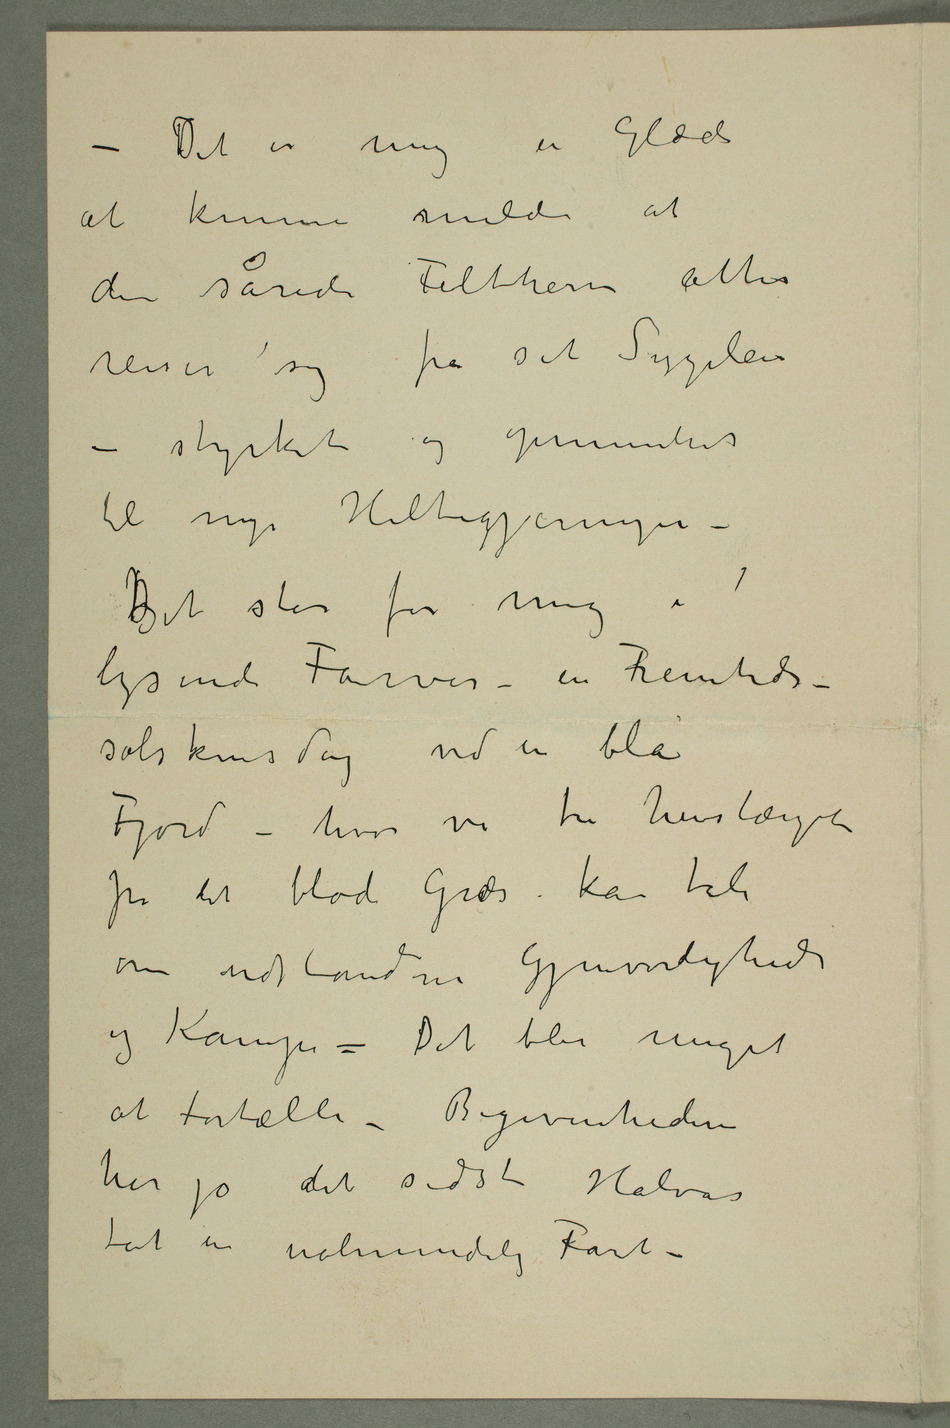 – Det er mig en Glæde
at kunne melde at
den sårede Feltherre atter
reiser sig fra sit Sygeleie
– styrket og opmuntret
til nye Heltegjerninger –
Det står for mig i
lysende Farver – en Fremtids-
solskinsdag ved en blå
Fjord – hvor vi tre henslængte
på det bløde Græs kan tale
om udstandne Gjenvordigheder
og Kampe – Det blir meget
at fortælle – Begivenhedene
har jo det sidste Halvår
tat en ualmindelig Fart –